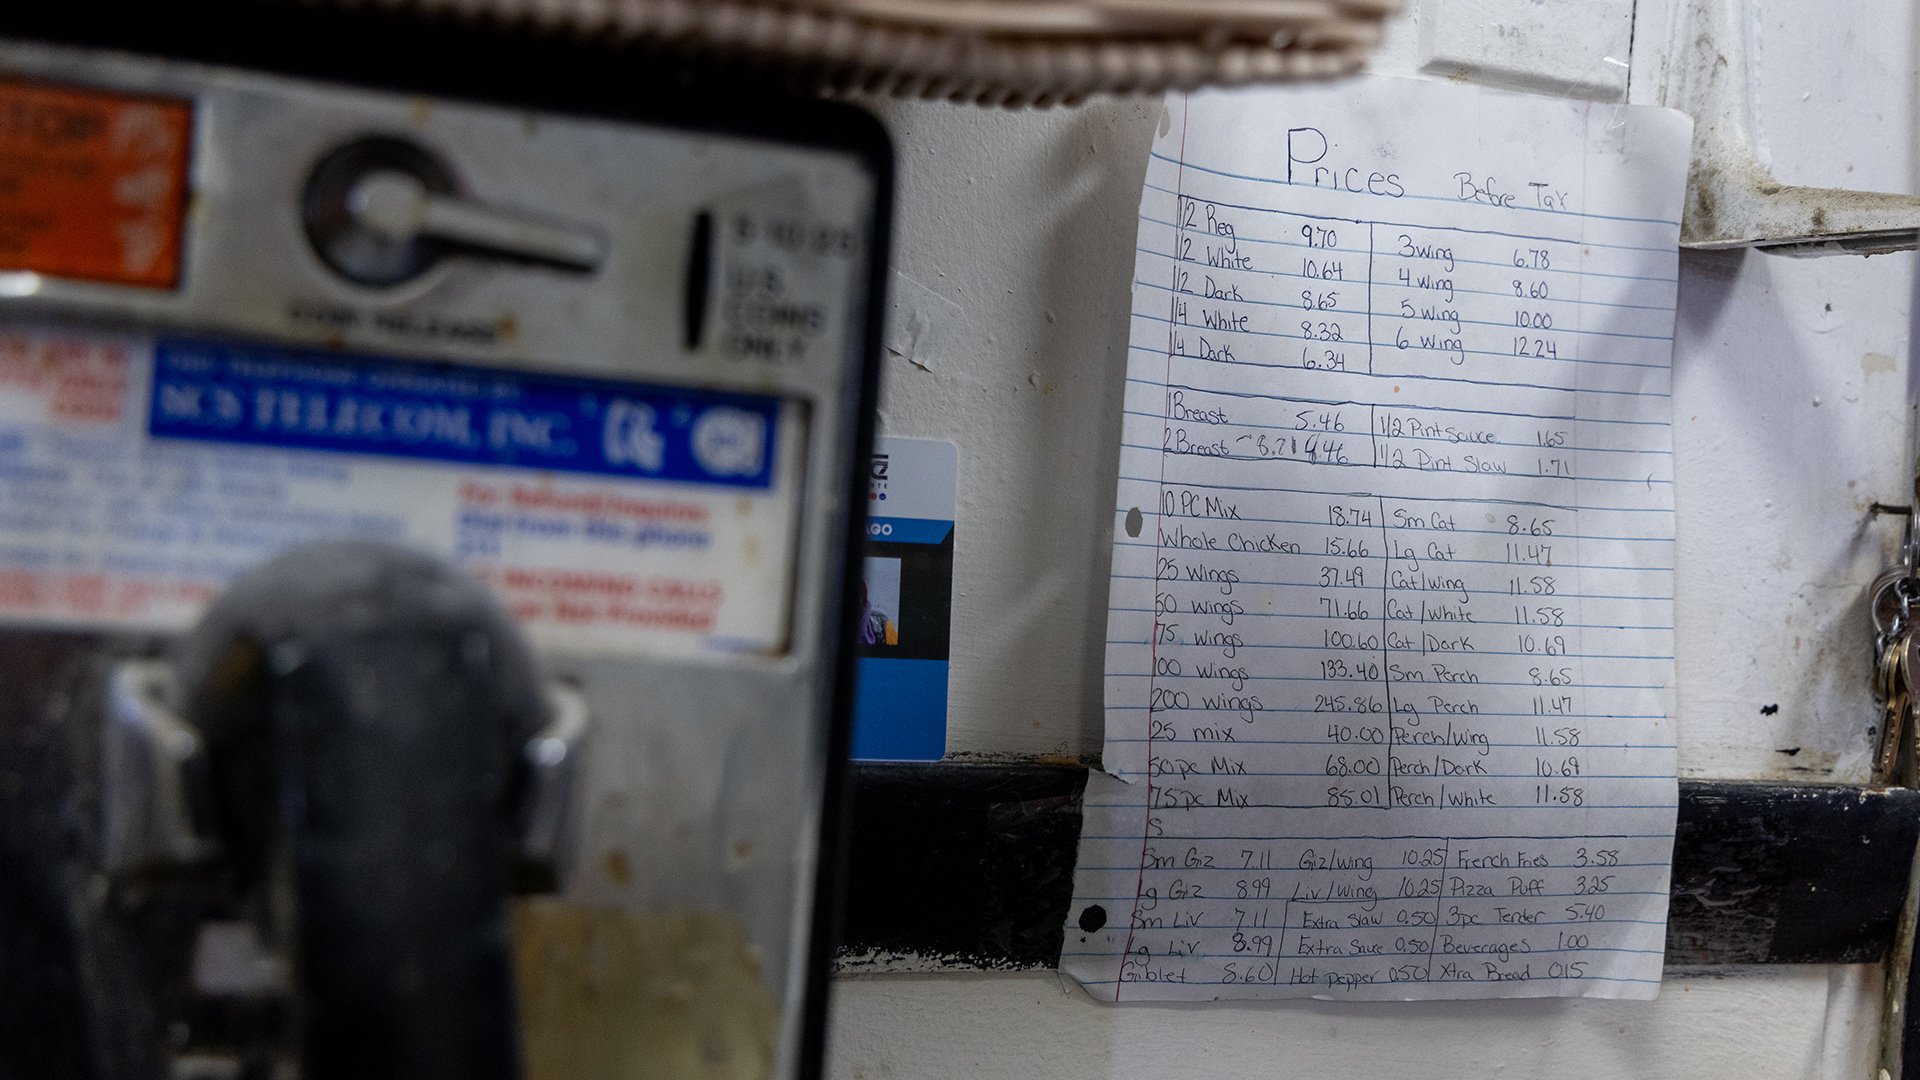 TOP
COIN RELEASE
5 10 25
U.S.
COINS
ONLY
TELECOM, INC.
INCOMING CALLS
AGO
Prices Before Tax
1/2 Reg 9.70
1/2 White 10.64
1/2 Dark 8.65
1/4 White 8.32
1/4 Dark 6.34
3 wing 6.78
4 wing 8.60
5 wing 10.00
6 wing 12.24
1 Breast 5.46
2 Breast 8.21
1/2 Pint Sauce 1.65
1/2 Pint Slaw 1.71
10 PC Mix 18.74
Whole Chicken 15.66
25 wings 37.49
50 wings 71.66
75 wings 100.60
100 wings 133.40
200 wings 245.86
25 mix 40.00
50 pc Mix 68.00
75 pc Mix 85.01
S
Sm Cat 8.65
Lg Cat 11.47
Cat/wing 11.58
Cat/white 11.58
Cat/Dark 10.69
Sm Perch 8.65
Lg Perch 11.47
Perch/wing 11.58
Perch/Dark 10.69
Perch/white 11.58
Sm Giz 7.11
Lg Giz 8.99
Sm Liv 7.11
Lg Liv 8.99
Giblet 8.60
Giz/wing 10.25
Liv/wing 10.25
Extra Slaw 0.50
Extra Sauce 0.50
Hot Pepper 0.50
French Fries 3.58
Pizza Puff 3.25
3pc Tender 5.40
Beverages 1.00
Xtra Bread 0.15